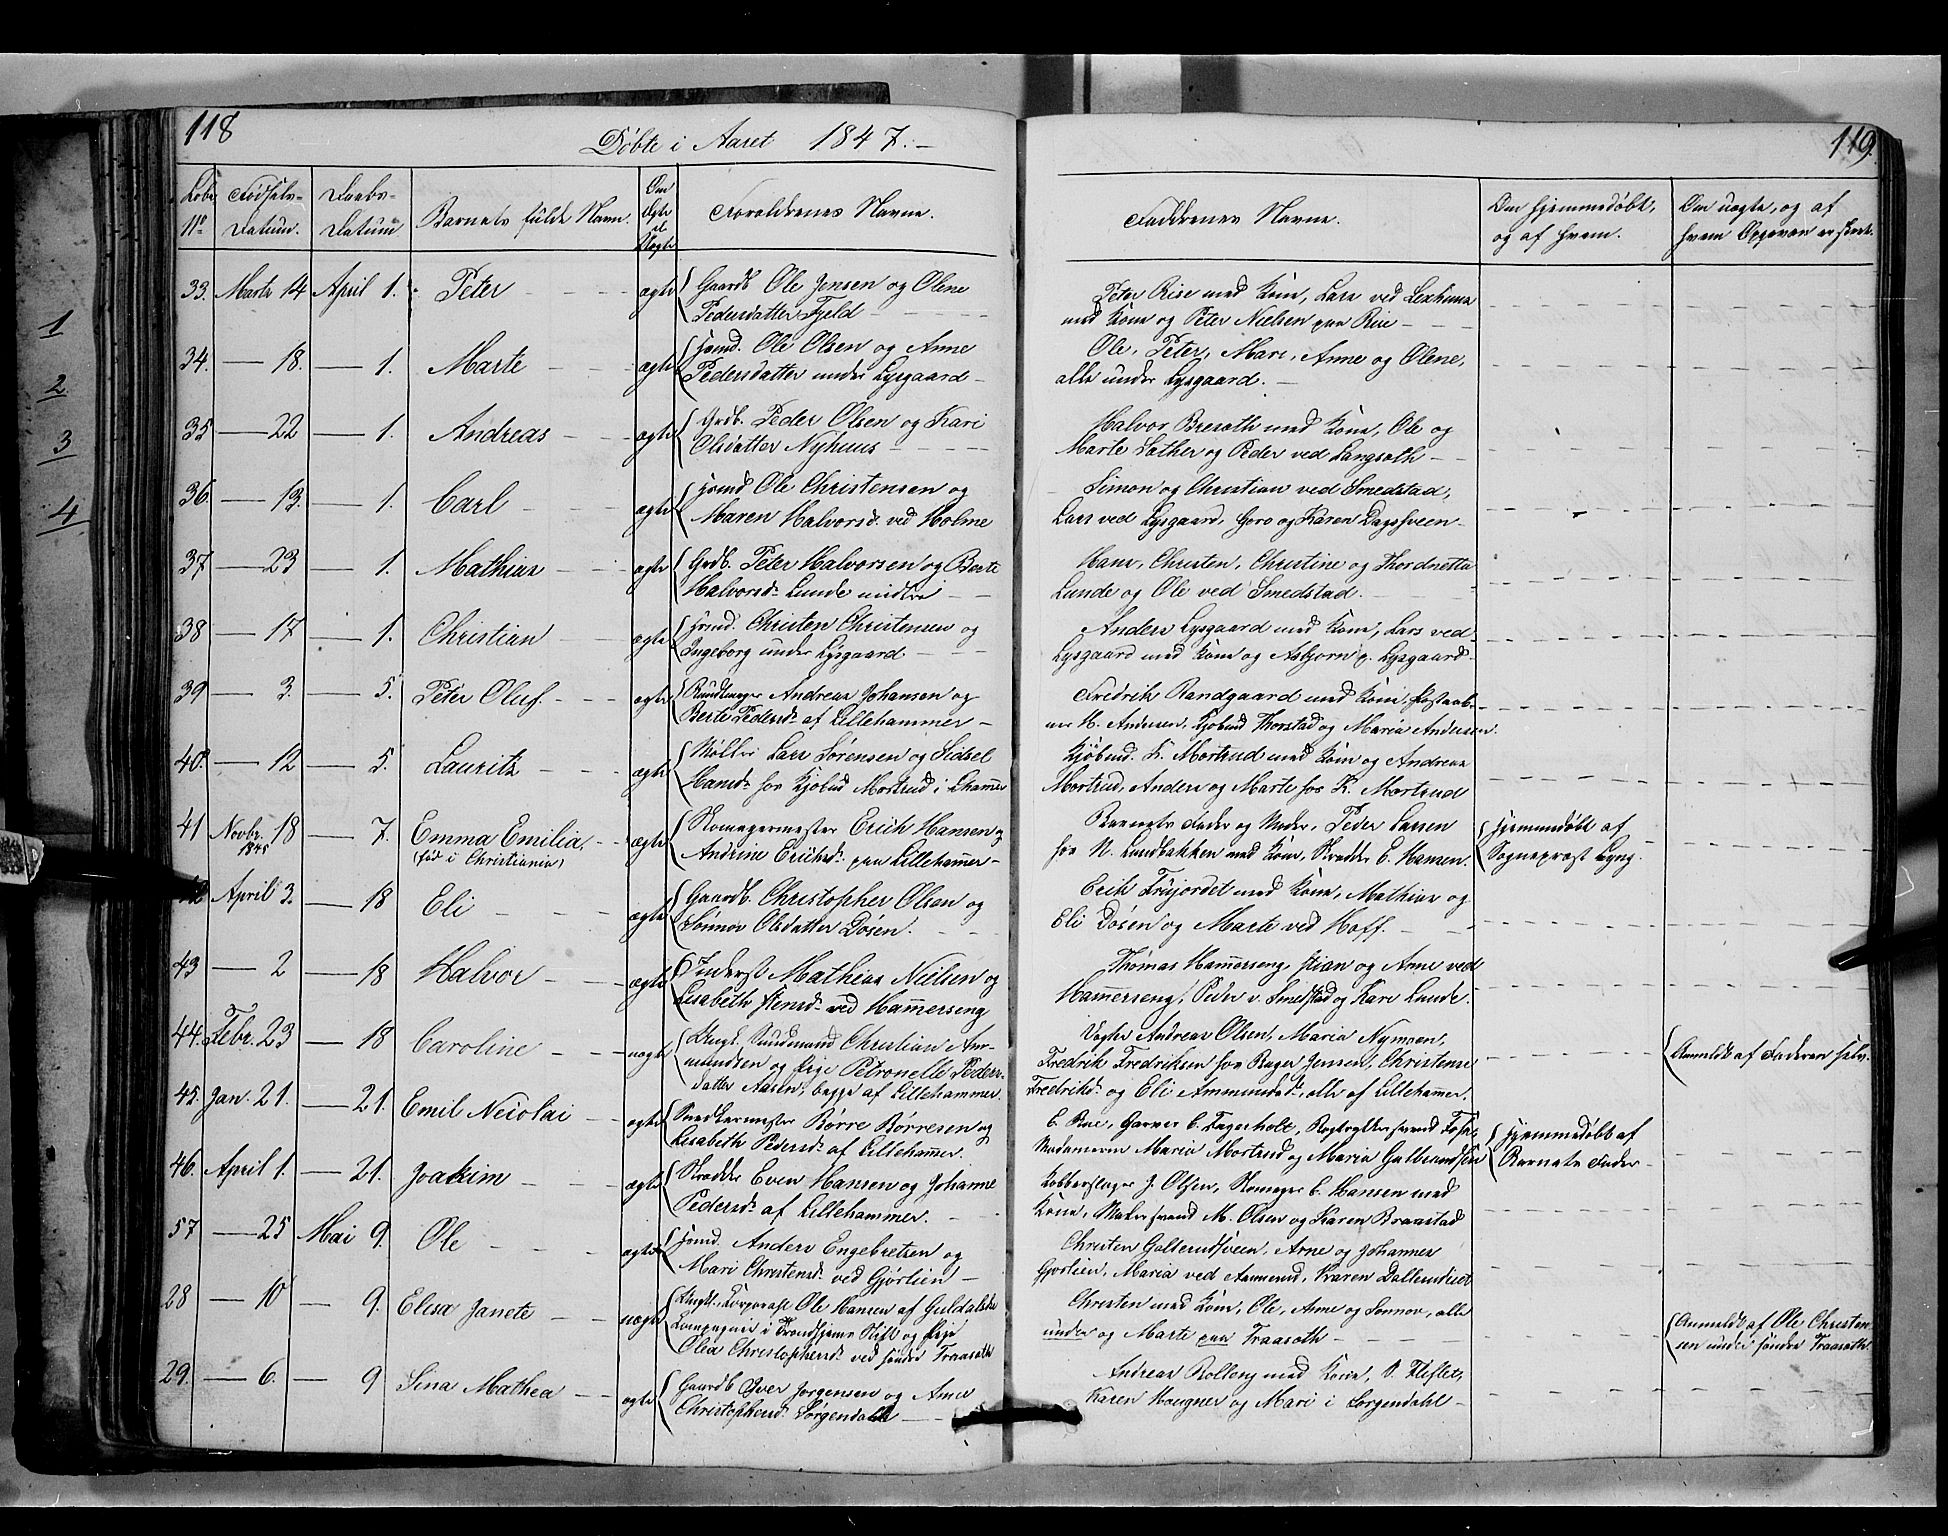 118
Döbte i Aaret 1847.
Löbe No
Födsels-Datum.
Daabs-Datum
Barnets fulde Navn.
Om Ægte el. Uægte
Forældrenes Navne.
33. Marts 14 April 1. Peter ægte Gaardb. Ole Jensen og Olene
Pedersdatter Fjeld
34. 18. 1. Marte ægte Huusmd. Ole Olsen og Anne
Pedersdatter under Lysgaard
35 22 1. Andreas ægte Grdb. Peder Olsen og Kari
Olsdatter Nyhuus
36. 13. 1. Carl ægte Huusmd Ole Christensen og
Maren Halvorsd. ved Holme
37 23 1. Mathias ægte Grdb. Peter Halvorsen og Berte
Halvorsd. Lunde midtre
38 17 1. Christian ægte Huusmd. Christen Christensen og
Ingeborg under Lysgaard
39 3. 5. Peter Oluf. ægte Bundtmager Andreas Johansen og
Berte Pedersd. af Lillehammer
40. 12 5. Lauritz ægte Möller Lars Sörensen og Sidsel
Hansd. hos Kjöbmd Mortrud i Lhammer
41 Novbr. 18 1845 7. Emma Emilia, (föd i Christiania) ægte Skomagermester Erich Hansen og
Andrine Erichsd. paa Lillehammer
April 3. 18 Eli ægte Gaardb. Christopher Olsen og
Sönnov Olsdatter Dösen.
43 2 18 Halvor ægte Inderst Mathias Nielsen og
Lisabeth Stensd. ved Hammerseng
44. Febr. 23 18 Caroline uægte Ungk. Christian Am-
mundsen og Pige Petronelle Peders-
datter Aasen, begge af Lillehammer.
45. Jan. 21. 21. Emil Nicolai ægte Snedkermester Börre Börresen og
Lisabeth Pedersd. af Lillehammer.
46. April 1. 21. Joakim ægte Skrædder Even Hansen og Johanne
Pedersd. af Lillehammer.
57 25 Mai 9. Ole ægte Huusmd. Anders Engebretsen og
Mari Christensd. ved Gjörlien
28 10 9. Elisa Janete uægte Ungk. Corporal Ole Hansen af Guldalske
Compagnie i Trondhjems Stift og Pige
Olea Christophersd. ved söndre Traaseth
29. 6. 9 Sina Mathea ægte Gaardb Iver Jörgensen og Anne
Christophersd. Sörgendahl
119.
Faddernes Navne.
Om hjemmedöbt, og af hvem.
Om uægte, og af hvem Opgaven er skeet.
Peter Rise med Kone, Lars ved
med Kone og Peter Nielsen paa Rise
Ole, Peter, Mari, Anne og Olene,
alle under Lysgaard.
Halvor Breseth med Kone, Ole og
Marte Sæther og Peder ved Langseth
Simon og Christian ved Smedstad,
Lars ved Lysgaard, Goro og Karen Dagsveen
Hans, Christen, Christine og Thordnetta
Lunde og Ole ved Smedstad.
Anders Lysgaard med Kone, Lars ved
Lysgaard med Kone og Asbjorn p. Lysgaard
Fredrik Randgaard med Kone, Postaab-
ner H. Andersen, Kjöbmd Thorstad og Maria Andersen.
Kjöbmd. K. Mortrud med Kone og Andreas
Mortrud, Anders og Marte hos K. Mortrud
Barnets Fader og Moder, Peder Larsen
hos N. Lundbakken med Kone, Skrædder E. Hansen. Hjemmedöbt af
Sognepræst Lyng.
Erik Frujordet med Kone, Mathias og
Eli Dosen og Marte ved Hoff.
Thomas Hammerseng, Stian og Anne ved
Hammerseng, Peder v. Smedstad og Kari Lunde.
Vægter Andreas Olsen, Maria Nymoen,
Fredrik Fredriksen hos Bager Jensen, Christense
Fredriksd. og Eli Ammundsd., alle af Lillehammer. Anmeldt af Faderen selv.
C. Rise, Garver C. Fagerholt, Bogtrykkersvend
Madamerne Maria Mortrud og Maria Gulbrandsen Hjemmedöbt af
Barnets Fader
Kobberslager J. Olsen, Skomager E. Hansen med
Kone, Malersvend M. Olsen og Karen Braastad
Christen Galterudsveen, Arne og Johannes
Gjorlien, Maria ved Aamerud, Karen
Christen med Kone, Ole, Anne og Sonnov, alle
under og Marte paa Traaseth Anmeldt af Ole Christen-
sen under söndre Traaseth.
Andreas Rolleng med Kone, O. Fliflet,
Karen Hougner og Mari i Sorgendahl
1
2
3
4